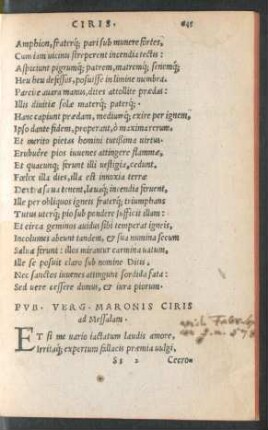 CIRIS.
Amphion, fraterq; pari sub munere fortes,
Cum iam uicinis strreperent incendia tectis:
Aspiciunt pigrumq; patrem, matremq; senemq;
Heu heu defessos, posuisse in limine membra.
Parcite auara manus, dites attollite prædas:
Illis diuitiæ solæ materq; paterq;.
Hanc capiunt prædam, mediumq; exire per ignem,
Ipso dante fidem, properant, ô maxima rerum.
Et merito pietas homini tutissima uirtus.
Erubuêre pios iuuenes attingere flammæ,
Et quacunq; ferunt illi uestigia, cedunt.
Fœlix illa dies, illa est innoxia terræ
Dextra sæua tenent, læuaq; incendia feruent,
Ille per obliquos igneis fraterq; triumphans
Tutus uterq; pio sub pondere sufficit illam:
Et circa geminos auidus sibi temperat igneis,
Incolumes abeunt tandem, et sua numina secum
Salua ferunt: illos mirantur carmina uatum,
Ille se posuit claro sub nomine Ditis,
Nec sanctos iuuenes attingunt sordida fata:
Sed uere cessere domus, et iura piorum.
PVB. VERG. MARONIS CIRIS
ad Messalam.
ET si me uario iactatum laudis amore,
Irritaq; expertum fallacis præmia uulgi,
Cecro=